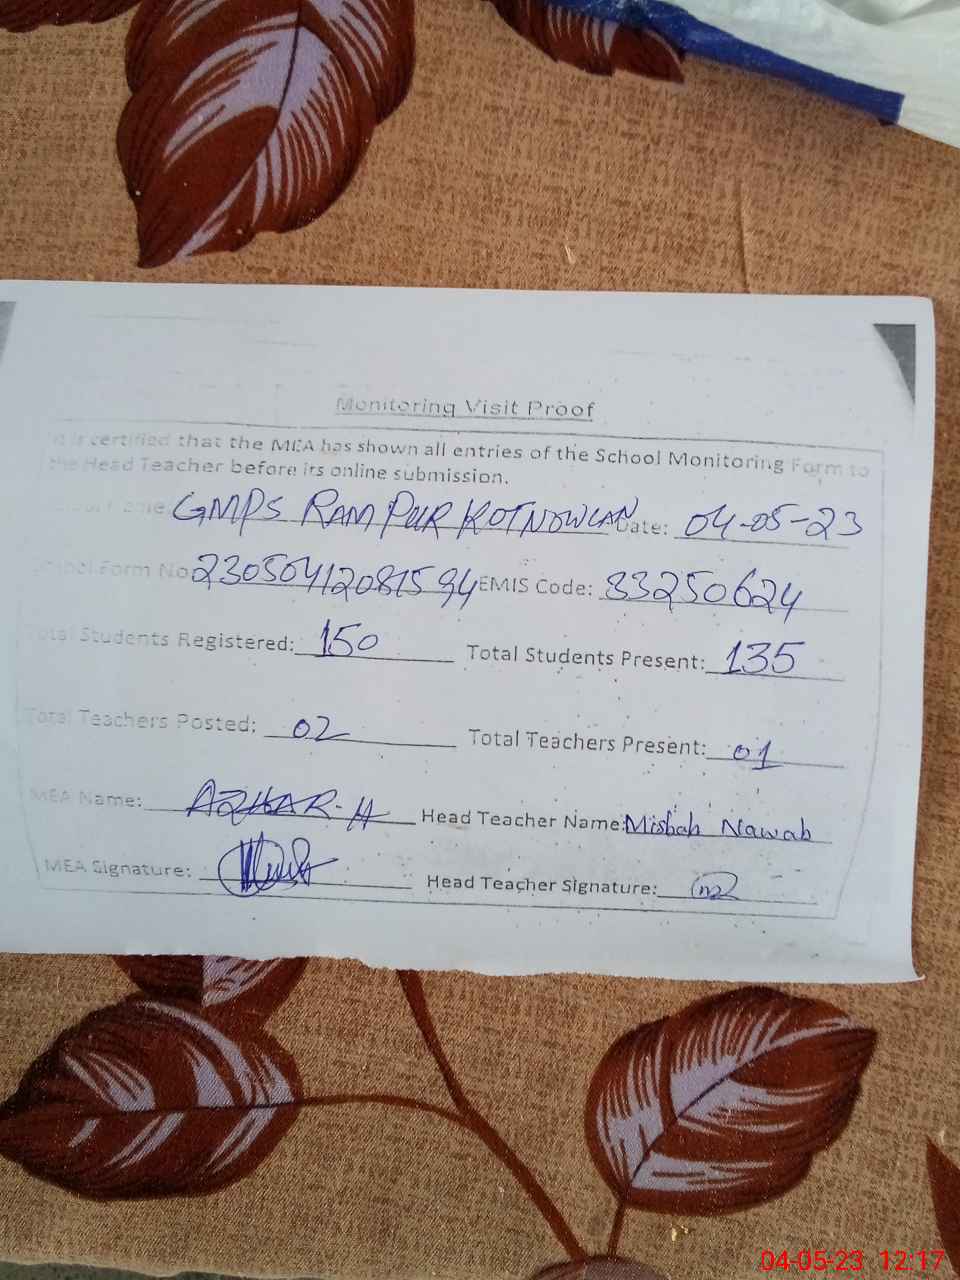 Monitoring Visit Proof
It is certified that the MEA has shown all entries of the School Monitoring Form to
the Head Teacher before its online submission.
Name: GMPS RAM PUR KOTNOWLAN Date: 04-05-23
School Form No 230504120815 94 EMIS Code: 33250624
Total Students Registered: 150 Total Students Present: 135
Total Teachers Posted: 02 Total Teachers Present: 01
MEA Name: AZHAR-H Head Teacher Name: Misbah Nawab
MEA Signature: Head Teacher Signature:
04-05-23 12:17